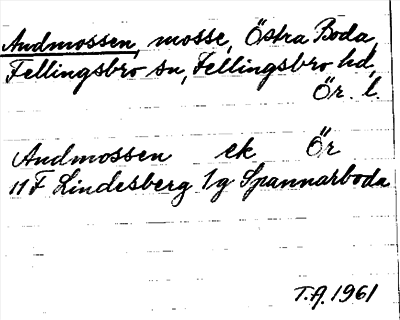 Andmossen, mosse, Östra Boda,
Fellingsbro sn, Fellingsbro hd,
Ör. l.
Andmossen ek Ör
11F Lindesberg 1g Spannarboda
T.A. 1961